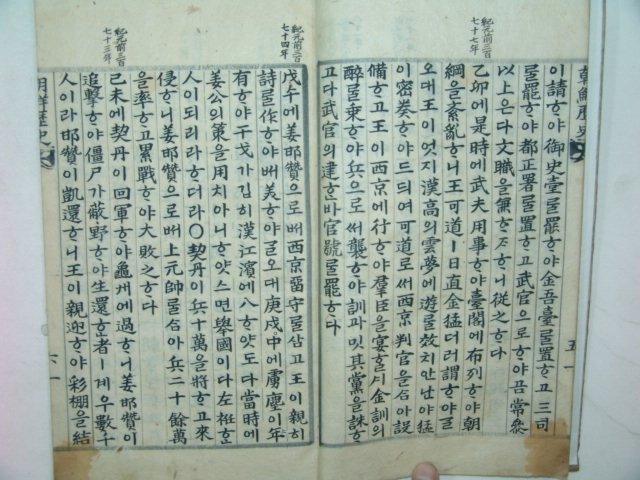 紀元前三百
七十七年
이請ᄒᆞ야御史臺ᄅᆞᆯ罷ᄒᆞ야金吾臺ᄅᆞᆯ置ᄒᆞ고三司
ᄅᆞᆯ罷ᄒᆞ야都正署ᄅᆞᆯ置ᄒᆞ고武官으로ᄒᆞ야곰常參
以上은다文職을兼ᄒᆞᄌᆞᄒᆞ니從之ᄒᆞ다
乙卯에是時에武夫用事ᄒᆞ야臺閣에布列ᄒᆞ야朝
綱을紊亂ᄒᆞ니王可道ㅣ日直金猛더러謂ᄒᆞ야ᄀᆞᆯ
오대王이엇지漢高의雲夢에遊ᄅᆞᆯ效치안난야猛
이密奏ᄒᆞ야드듸여可道로써西京判官을合아設
備ᄒᆞ고王이西京에行ᄒᆞ야羣臣을宴ᄒᆞᆯᄉᆡ金訓의
醉ᄅᆞᆯ乘ᄒᆞ야兵으로써襲ᄒᆞ야訓과밋其黨을誅ᄒᆞ
고다武官의建ᄒᆞᆫ바官號ᄅᆞᆯ罷ᄒᆞ다
紀元前三百
七十四年
戊午에姜邯贊으로ᄡᅥ西京留守ᄅᆞᆯ삼고王이親히
詩ᄅᆞᆯ作ᄒᆞ야ᄡᅥ美ᄒᆞ야ᄀᆞᆯ오대庚戌中에虜塵이年
有ᄒᆞ야干戈가깁히漢江濱에入ᄒᆞ얏도다當時에
姜公의策을用치아니ᄒᆞ얏스면擧國이다左衽ᄒᆞᆫ
人이되리라ᄒᆞ더라〇契丹이兵十萬을將ᄒᆞ고來
侵ᄒᆞ니姜邯贊으로ᄡᅥ上元帥ᄅᆞᆯ合아兵二十餘萬
을率ᄒᆞ고累戰ᄒᆞ야大敗之ᄒᆞ다
紀元前三百
七十三年
己未에契丹이回軍ᄒᆞ야龜州에過ᄒᆞ니姜邯贊이
追擊ᄒᆞ야僵尸가蔽野ᄒᆞ야生還ᄒᆞᆫ者ㅣ계우數千
人이라邯贊이凱還ᄒᆞ니王이親迎ᄒᆞ야彩棚을結